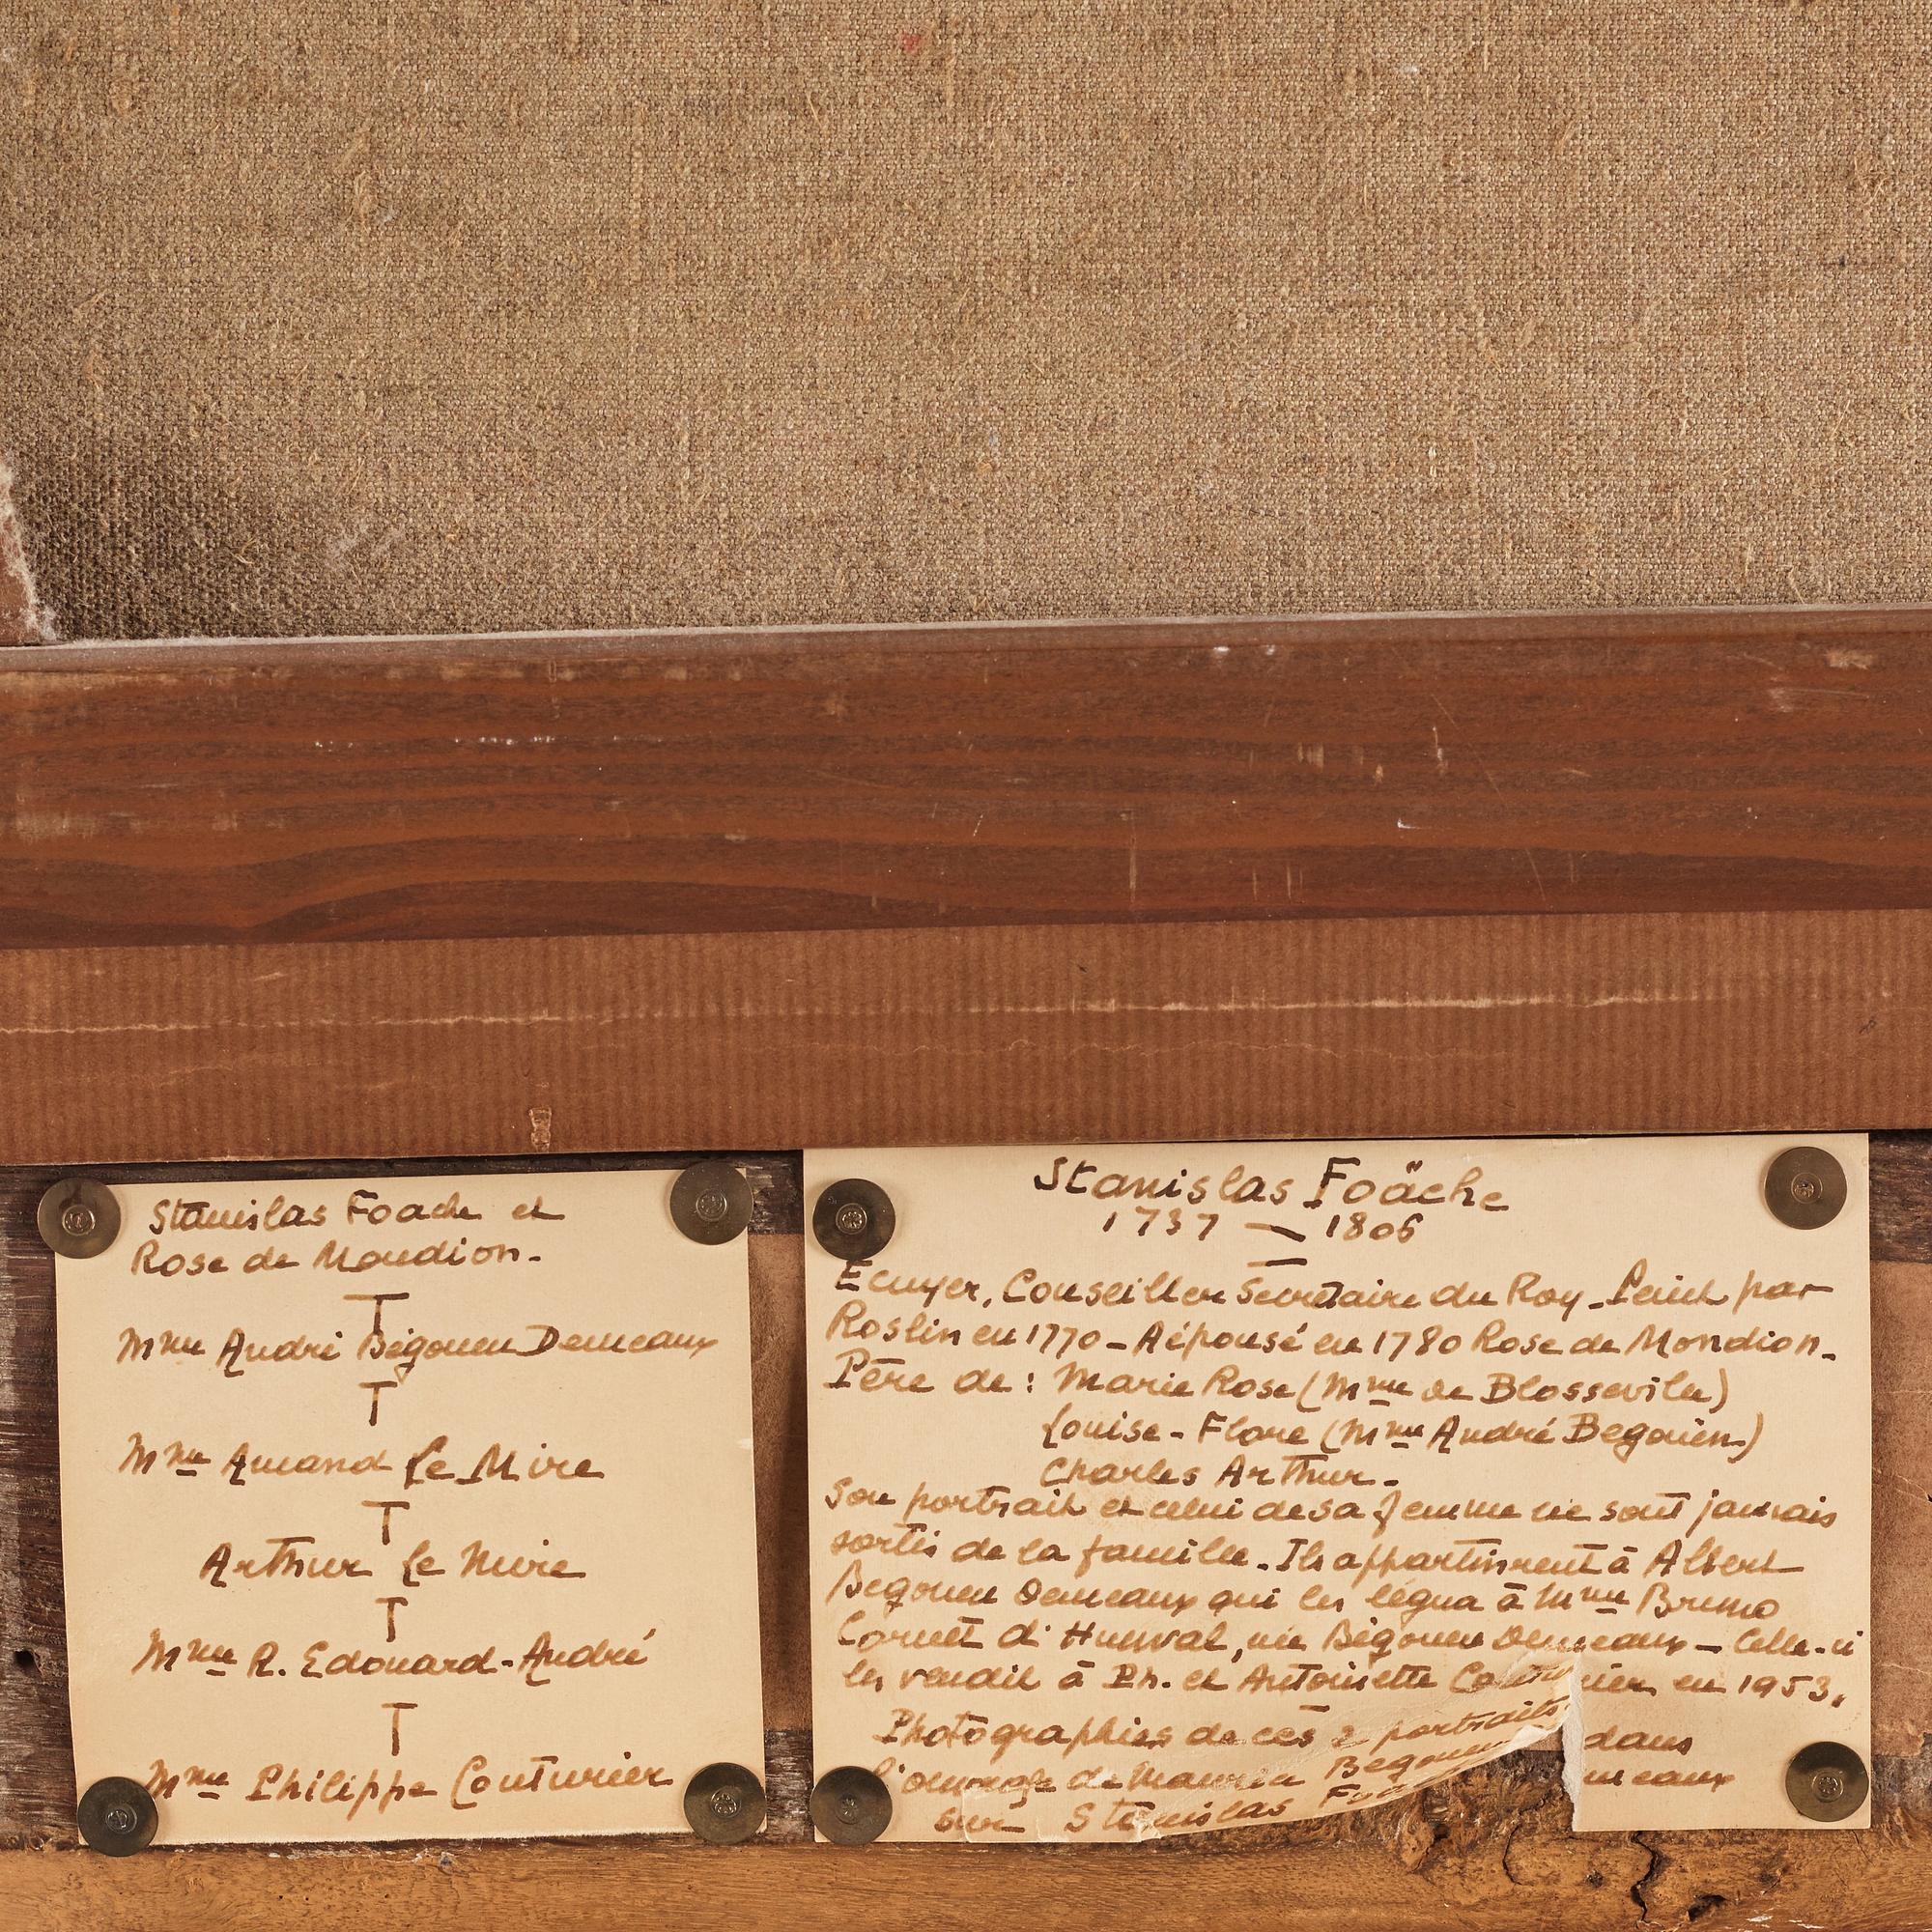 Stanislas Foache et
Rose de Mondion.
Mme André Bégouen Demeaux
Mme Amand Le Mire
Arthur Le Mire
Mme R. Edouard-André
Mme Philippe Couturier
Stanislas Foäche
1737 — 1806
Ecuyer, Conseiller Secretaire du Roy - Peint par
Roslin en 1770 - A épousé en 1780 Rose de Mondion.
Père de : Marie Rose (Mme de Blosseville)
Louise - Flore (Mme André Begouën)
Charles Arthur.
Son portrait et celui de sa femme ne sont jamais
sortis de la famille. Ils appartinrent à Albert
Begouen Demeaux qui les légua à Mme Bruno
Cornet d'Hunval, née Bégouen Demeaux - Celle-ci
les vendit à Ph. et Antoinette Couturier en 1953.
Photographies de ces 2 portraits dans
l'ouvrage de Maurice Begouen meaux
sur Stanislas Foa